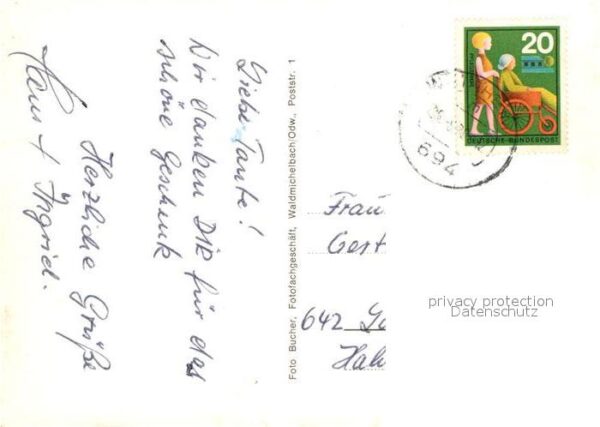 Liebe Tante!
Wir danken Dir für das
schöne Geschenk
Herzliche Grüße
Hans + Ingrid.
Foto Bucher, Fotofachgeschäft, Waldmichelbach/Odw., Poststr. 1
20
DEUTSCHE BUNDESPOST
694
Frau
Gert
642
privacy protection
Datenschutz